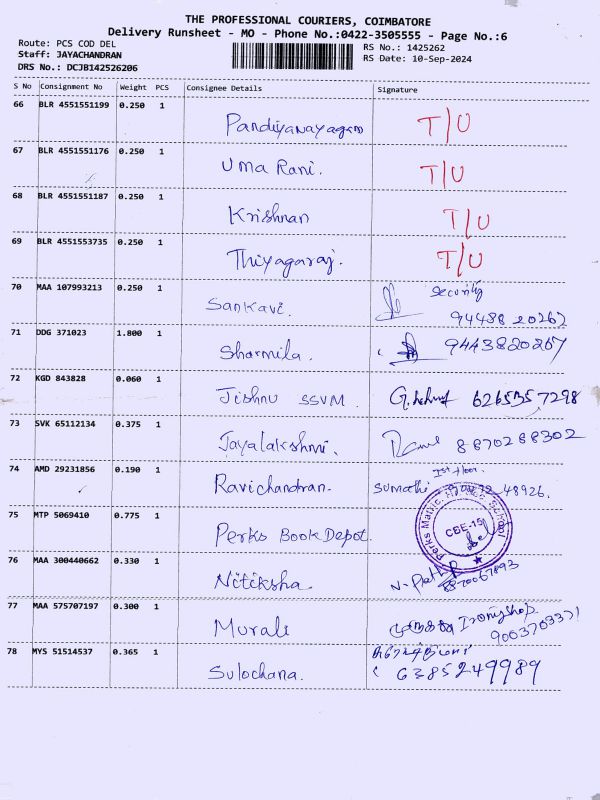 THE PROFESSIONAL COURIERS, COIMBATORE
Delivery Runsheet - MO - Phone No.:0422-3505555 - Page No.:6
Route: PCS COD DEL
Staff: JAYACHANDRAN
DRS No.: DCJB142526206
RS No.: 1425262
RS Date: 10-Sep-2024
S No Consignment No Weight PCS Consignee Details Signature
66 BLR 4551551199 0.250 1 Pandiyanayagam T/U
67 BLR 4551551176 0.250 1 Uma Rani. T/U
68 BLR 4551551187 0.250 1 Krishnan T/U
69 BLR 4551553735 0.250 1 Thiyagaraj. T/U
70 MAA 107993213 0.250 1 Sankavi. Security
94438 20267
71 DDG 371023 1.800 1 Sharmila. 9443820267
72 KGD 843828 0.060 1 Jishnu SSVM 6265357298
73 SVK 65112134 0.375 1 Jayalakshmi. 8870288302
74 AMD 29231856 0.190 1 Ravichandran. Ist floor.
Sumathi 48926.
75 MTP 5069410 0.775 1 Perks Book Depot.
Perks Matric. Hr. Sec. School
CBE-15
76 MAA 300440662 0.330 1 Nitiksha
8870067893
77 MAA 575707197 0.300 1 Murali முருகன் Ironing Shop
9003703371
78 MYS 51514537 0.365 1 Sulochana. 6385249989